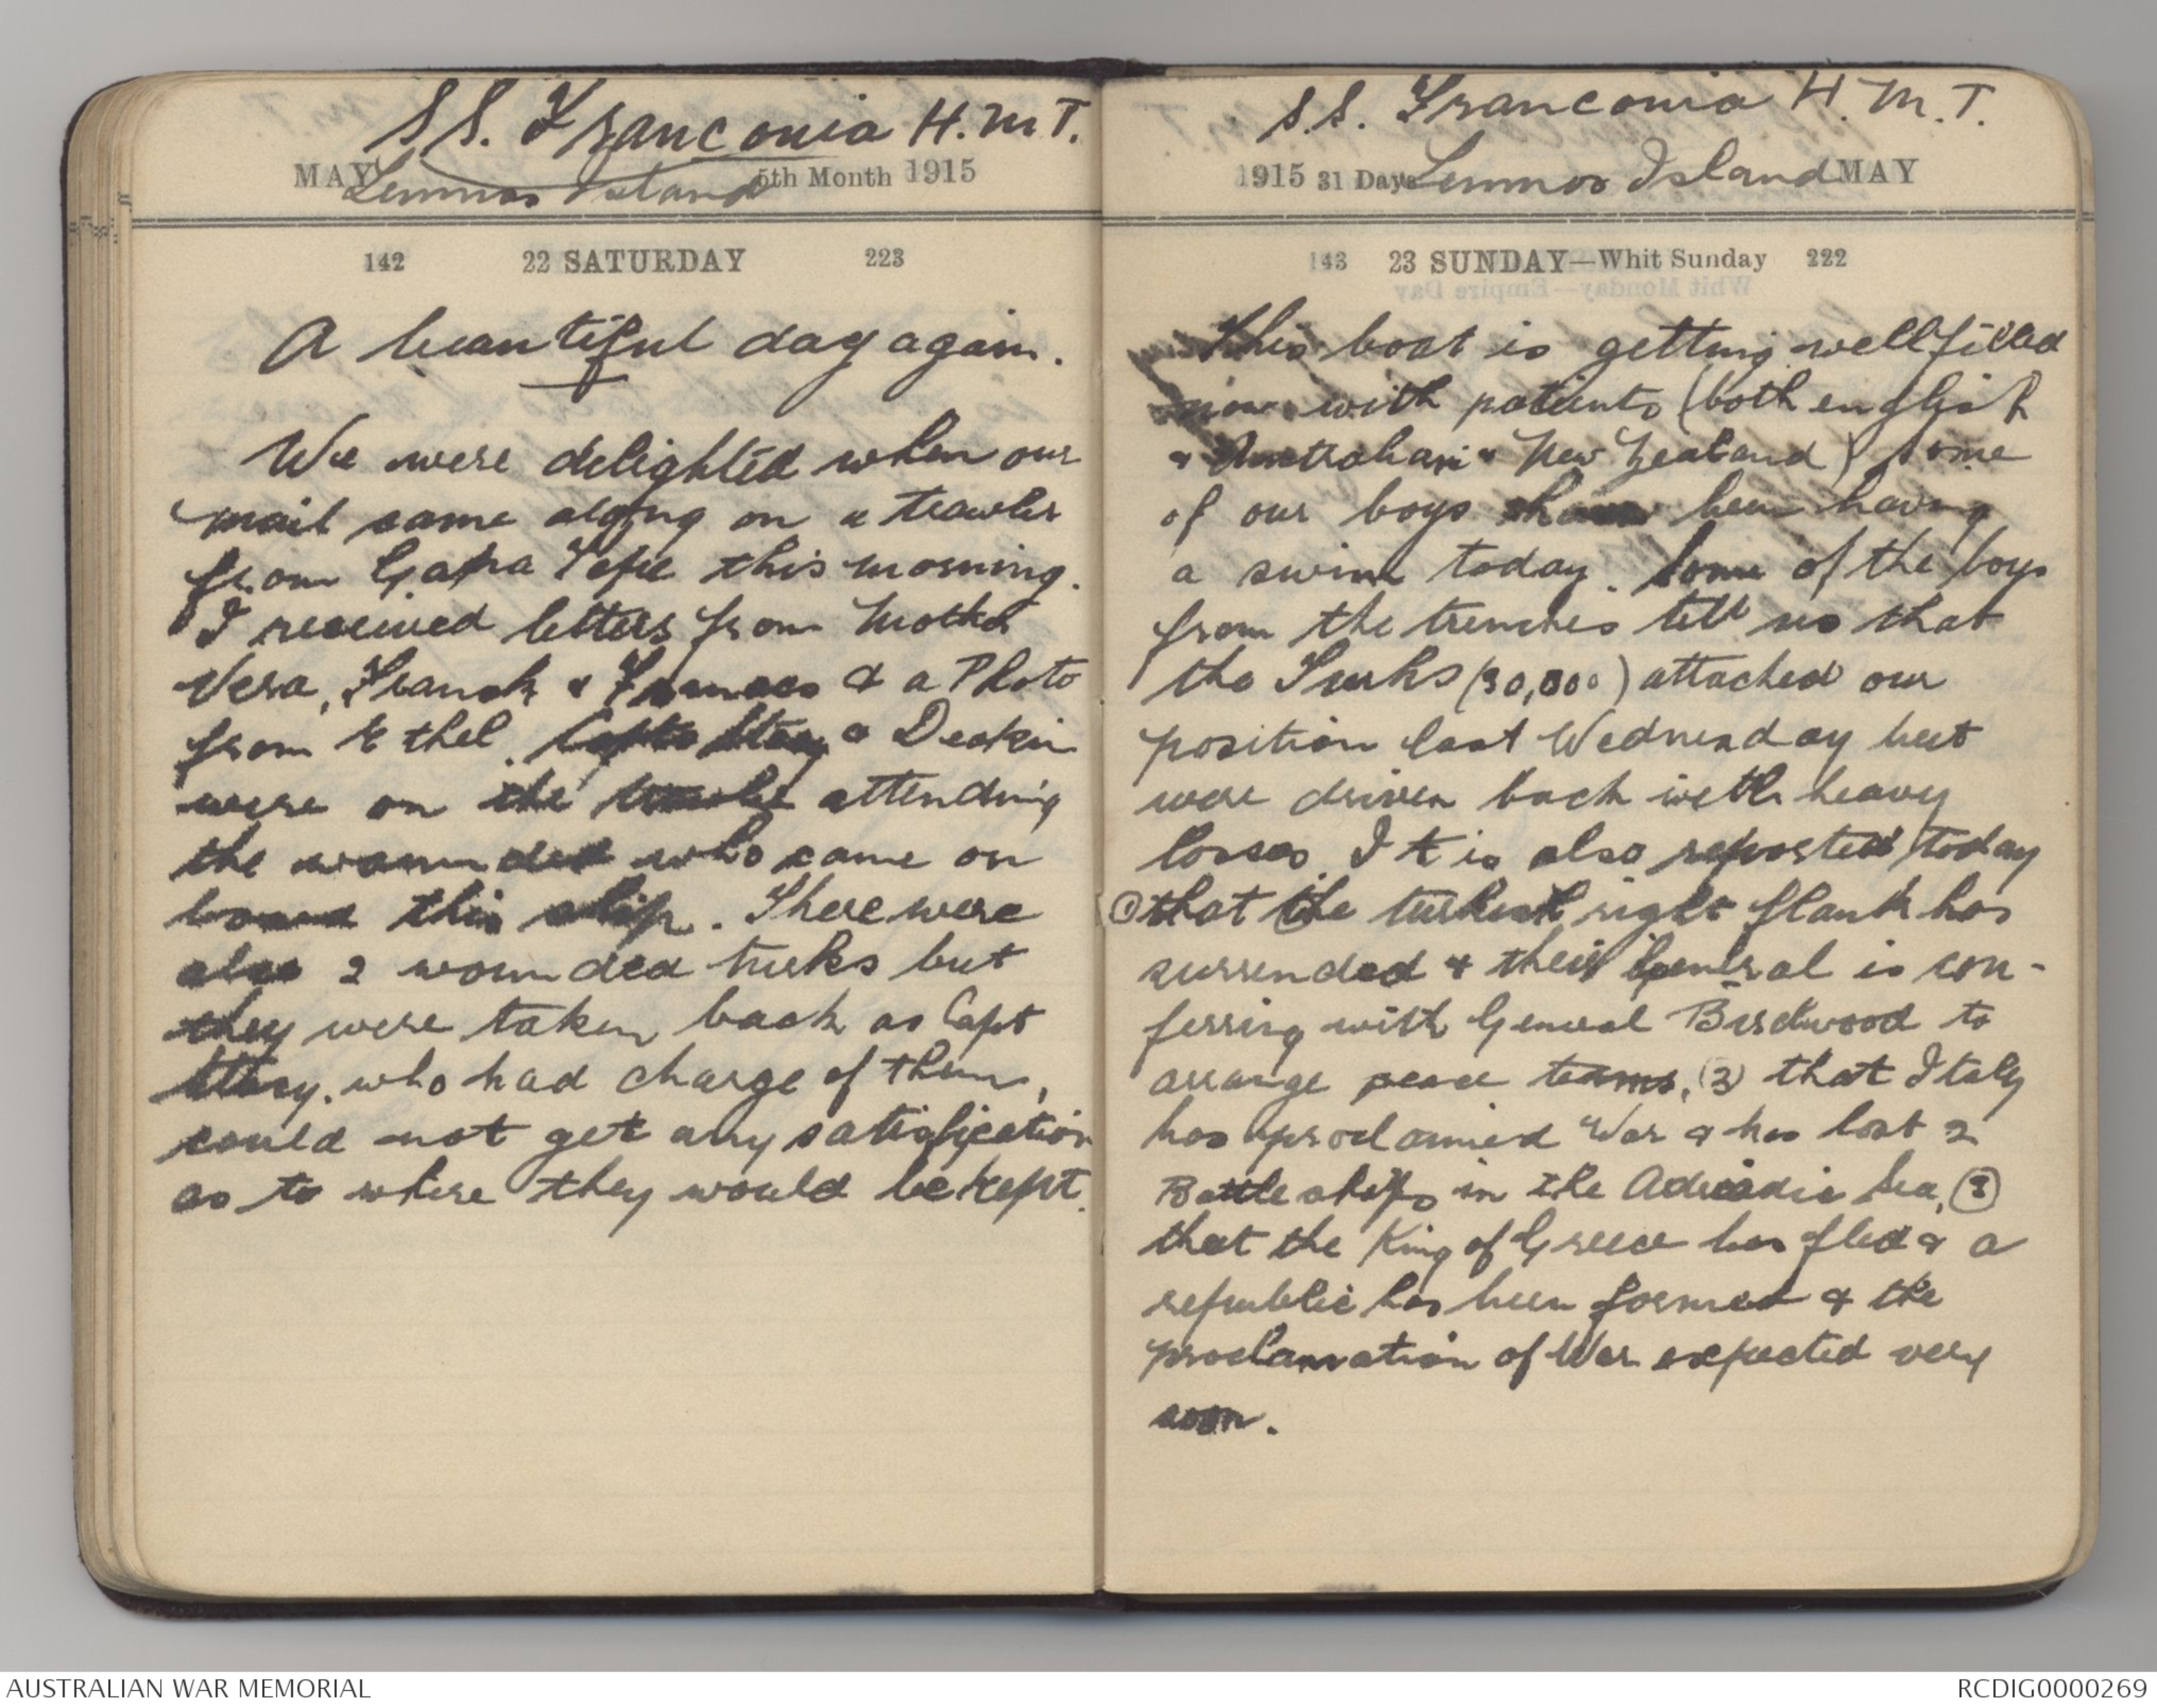 S.S. Franconia H.M.T.
MAY 5th Month 1915
Lemnos Island
142 22 SATURDAY 223
A beautiful day again.
We were delighted when our
mail came along on a trawler
from Gaba Tepe this morning.
I received letters from Mother
Vera, Franck & Frances & a Photo
from Ethel. Capts Stacy & Deakin
were on the trawler attending
the wounded who came on
board this ship. There were
also 2 wounded turks but
they were taken back as Capt
Stacy. who had charge of them,
could not get any satisfication
as to where they would be kept.
S.S. Franconia H.M.T.
1915 31 Days Lemnos Island MAY
143 23 SUNDAY—Whit Sunday 222
This boat is getting well filled
now with patients (both english
& Australian & New Zealand) some
of our boys have been having
a swim today. Some of the boys
from the trenches tell us that
the Turks (30,000) attacked our
position last Wednesday but
were driven back with heavy
losses. It is also reported today
① that the turkish right flank has
surrended & their General is con-
ferring with General Birdwood to
arrange peace terms, (2) that Italy
has proclamied War & has lost 2
Battleships in the Adriadic Sea, (3)
that the King of Greece has fled & a
republic has been formed & the
proclamation of War expected very
soon.
AUSTRALIAN WAR MEMORIAL
RCDIG0000269